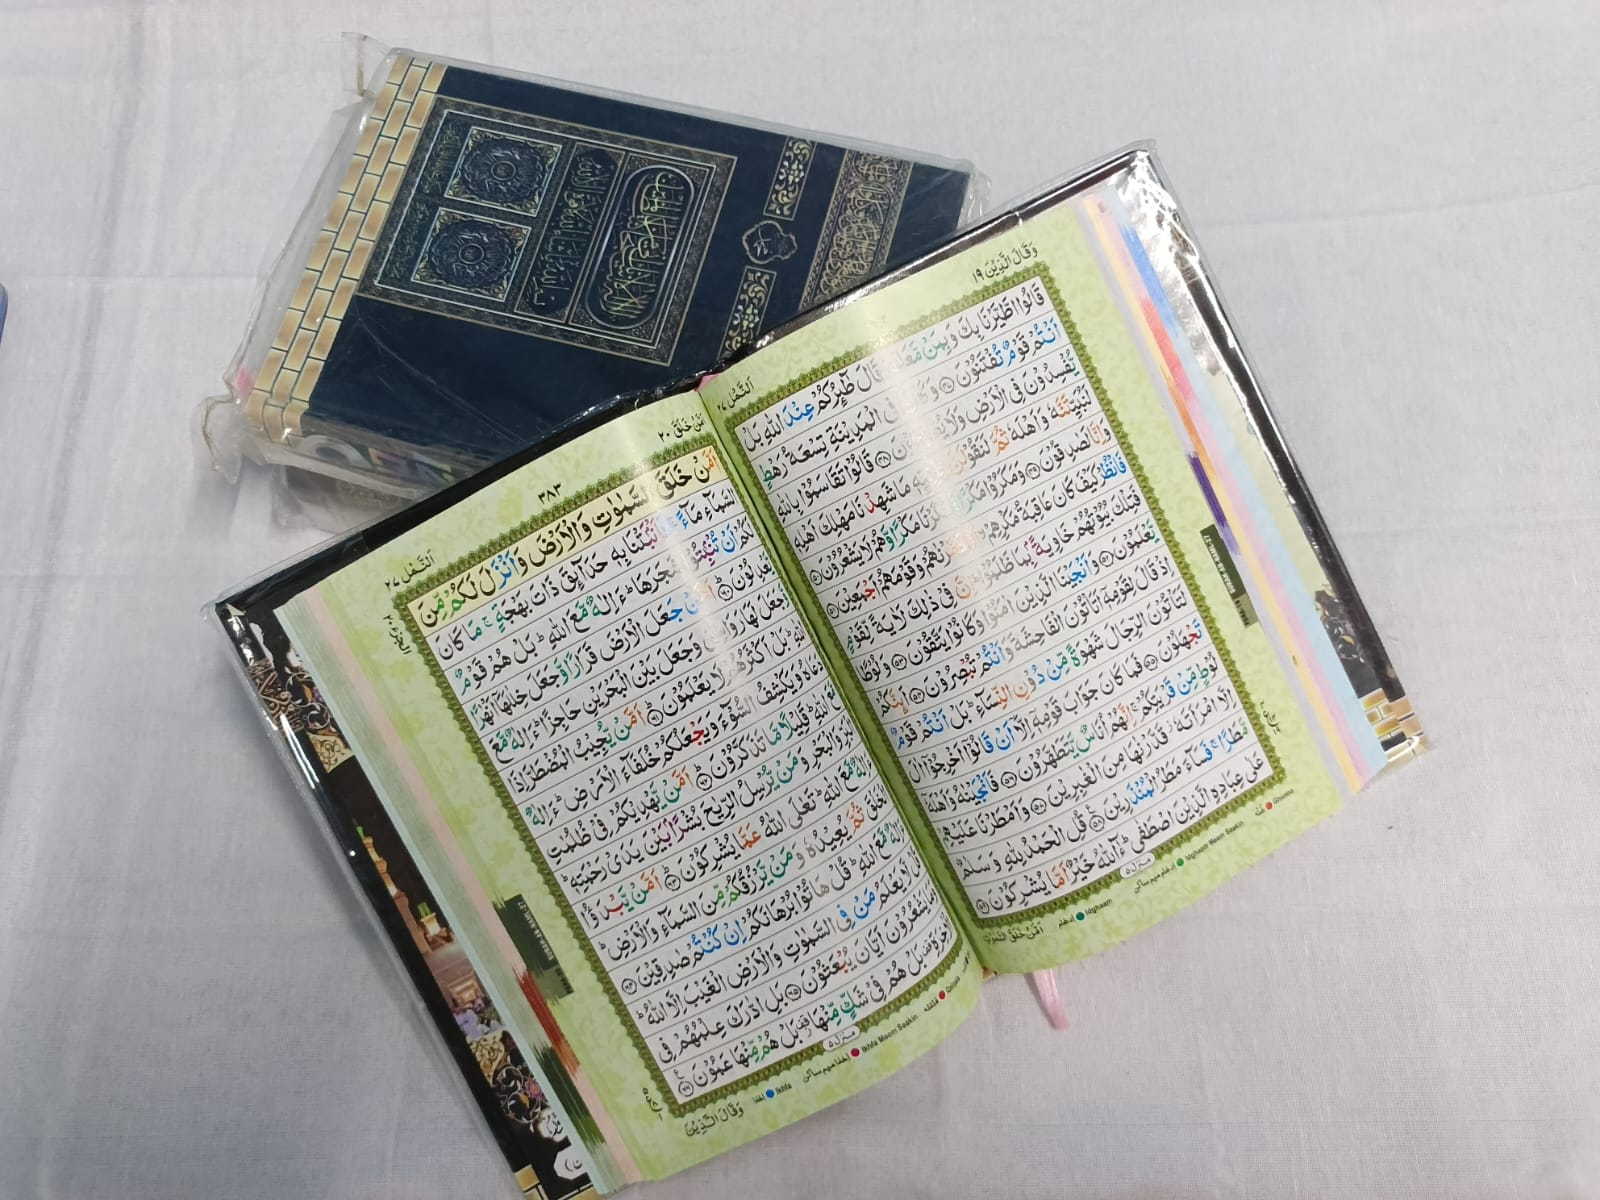 وَقَالَ الَّذِيْنَ ١٩
اَلنَّمْل ٢٧
قَالُوا اطَّيَّرْنَا بِكَ وَبِمَنْ مَّعَكَ قَالَ طٰٓئِرُكُمْ عِنْدَ اللّٰهِ بَلْ
اَنْتُمْ قَوْمٌ تُفْتَنُوْنَ ﴿٤٧﴾ وَكَانَ فِي الْمَدِيْنَةِ تِسْعَةُ رَهْطٍ
يُّفْسِدُوْنَ فِي الْاَرْضِ وَلَا ﴿٤٨﴾ قَالُوْا تَقَاسَمُوْا بِاللّٰهِ
لَنُبَيِّتَنَّهٗ وَاَهْلَهٗ ثُمَّ لَنَقُوْلَنَّ مَا شَهِدْنَا مَهْلِكَ اَهْلِهٖ
وَاِنَّا لَصٰدِقُوْنَ ﴿٤٩﴾ وَمَكَرُوْا مَكْرًا وَّمَكَرْنَا مَكْرًا وَّهُمْ لَا يَشْعُرُوْنَ ﴿٥٠﴾
فَانْظُرْ كَيْفَ كَانَ عَاقِبَةُ مَكْرِهِمْ دَمَّرْنٰهُمْ وَقَوْمَهُمْ اَجْمَعِيْنَ ﴿٥١﴾
فَتِلْكَ بُيُوْتُهُمْ خَاوِيَةً بِمَا ظَلَمُوْا اِنَّ فِيْ ذٰلِكَ لَاٰيَةً لِّقَوْمٍ
يَّعْلَمُوْنَ ﴿٥٢﴾ وَاَنْجَيْنَا الَّذِيْنَ اٰمَنُوْا وَكَانُوْا يَتَّقُوْنَ ﴿٥٣﴾ وَلُوْطًا
اِذْ قَالَ لِقَوْمِهٖٓ اَتَاْتُوْنَ الْفَاحِشَةَ وَاَنْتُمْ تُبْصِرُوْنَ ﴿٥٤﴾ اَئِنَّكُمْ
لَتَاْتُوْنَ الرِّجَالَ شَهْوَةً مِّنْ دُوْنِ النِّسَآءِ بَلْ اَنْتُمْ قَوْمٌ
تَجْهَلُوْنَ ﴿٥٥﴾ فَمَا كَانَ جَوَابَ قَوْمِهٖٓ اِلَّآ اَنْ قَالُوْٓا اَخْرِجُوْٓا اٰلَ
لُوْطٍ مِّنْ قَرْيَتِكُمْ اِنَّهُمْ اُنَاسٌ يَّتَطَهَّرُوْنَ ﴿٥٦﴾ فَاَنْجَيْنٰهُ وَاَهْلَهٗٓ
اِلَّا امْرَاَتَهٗ قَدَّرْنٰهَا مِنَ الْغٰبِرِيْنَ ﴿٥٧﴾ وَاَمْطَرْنَا عَلَيْهِمْ
مَّطَرًا فَسَآءَ مَطَرُ الْمُنْذَرِيْنَ ﴿٥٨﴾ قُلِ الْحَمْدُ لِلّٰهِ وَسَلٰمٌ
عَلٰى عِبَادِهِ الَّذِيْنَ اصْطَفٰى آٰللّٰهُ خَيْرٌ اَمَّا يُشْرِكُوْنَ ﴿٥٩﴾
مَنْزِل ٥
غُنّه Ghunna
اِدغام ميم ساكن Idghaam Meem Saakin
اِدغام Idghaam
اَمَّنْ خَلَقَ السَّمٰوٰتِ
اَمَّنْ خَلَقَ ٢٠
٣٨٣
اَلنَّمْل ٢٧
الجزء ٢٠
اَمَّنْ خَلَقَ السَّمٰوٰتِ وَالْاَرْضَ وَاَنْزَلَ لَكُمْ مِّنَ
السَّمَآءِ مَآءً فَاَنْۢبَتْنَا بِهٖ حَدَآئِقَ ذَاتَ بَهْجَةٍ مَا كَانَ
لَكُمْ اَنْ تُنْۢبِتُوْا شَجَرَهَا ءَاِلٰهٌ مَّعَ اللّٰهِ بَلْ هُمْ قَوْمٌ
يَّعْدِلُوْنَ ﴿٦٠﴾ اَمَّنْ جَعَلَ الْاَرْضَ قَرَارًا وَّجَعَلَ خِلٰلَهَآ اَنْهٰرًا
وَّجَعَلَ لَهَا رَوَاسِيَ وَجَعَلَ بَيْنَ الْبَحْرَيْنِ حَاجِزًا ءَاِلٰهٌ مَّعَ
اللّٰهِ بَلْ اَكْثَرُهُمْ لَا يَعْلَمُوْنَ ﴿٦١﴾ اَمَّنْ يُّجِيْبُ الْمُضْطَرَّ اِذَا
دَعَاهُ وَيَكْشِفُ السُّوْٓءَ وَيَجْعَلُكُمْ خُلَفَآءَ الْاَرْضِ ءَاِلٰهٌ
مَّعَ اللّٰهِ قَلِيْلًا مَّا تَذَكَّرُوْنَ ﴿٦٢﴾ اَمَّنْ يَّهْدِيْكُمْ فِيْ ظُلُمٰتِ
الْبَرِّ وَالْبَحْرِ وَمَنْ يُّرْسِلُ الرِّيٰحَ بُشْرًۢا بَيْنَ يَدَيْ رَحْمَتِهٖ
ءَاِلٰهٌ مَّعَ اللّٰهِ تَعٰلَى اللّٰهُ عَمَّا يُشْرِكُوْنَ ﴿٦٣﴾ اَمَّنْ يَّبْدَؤُا
الْخَلْقَ ثُمَّ يُعِيْدُهٗ وَمَنْ يَّرْزُقُكُمْ مِّنَ السَّمَآءِ وَالْاَرْضِ
ءَاِلٰهٌ مَّعَ اللّٰهِ قُلْ هَاتُوْا بُرْهَانَكُمْ اِنْ كُنْتُمْ صٰدِقِيْنَ ﴿٦٤﴾
قُلْ لَّا يَعْلَمُ مَنْ فِي السَّمٰوٰتِ وَالْاَرْضِ الْغَيْبَ اِلَّا اللّٰهُ
وَمَا يَشْعُرُوْنَ اَيَّانَ يُبْعَثُوْنَ ﴿٦٥﴾ بَلِ ادّٰرَكَ عِلْمُهُمْ فِي
الْاٰخِرَةِ بَلْ هُمْ فِيْ شَكٍّ مِّنْهَا بَلْ هُمْ مِّنْهَا عَمُوْنَ ﴿٦٦﴾
مَنْزِل ٥
قلقله Qalqala
اِخفا ميم ساكن Ikhfa Meem Saakin
اِخفا Ikhfa
وَقَالَ الَّذِيْنَ